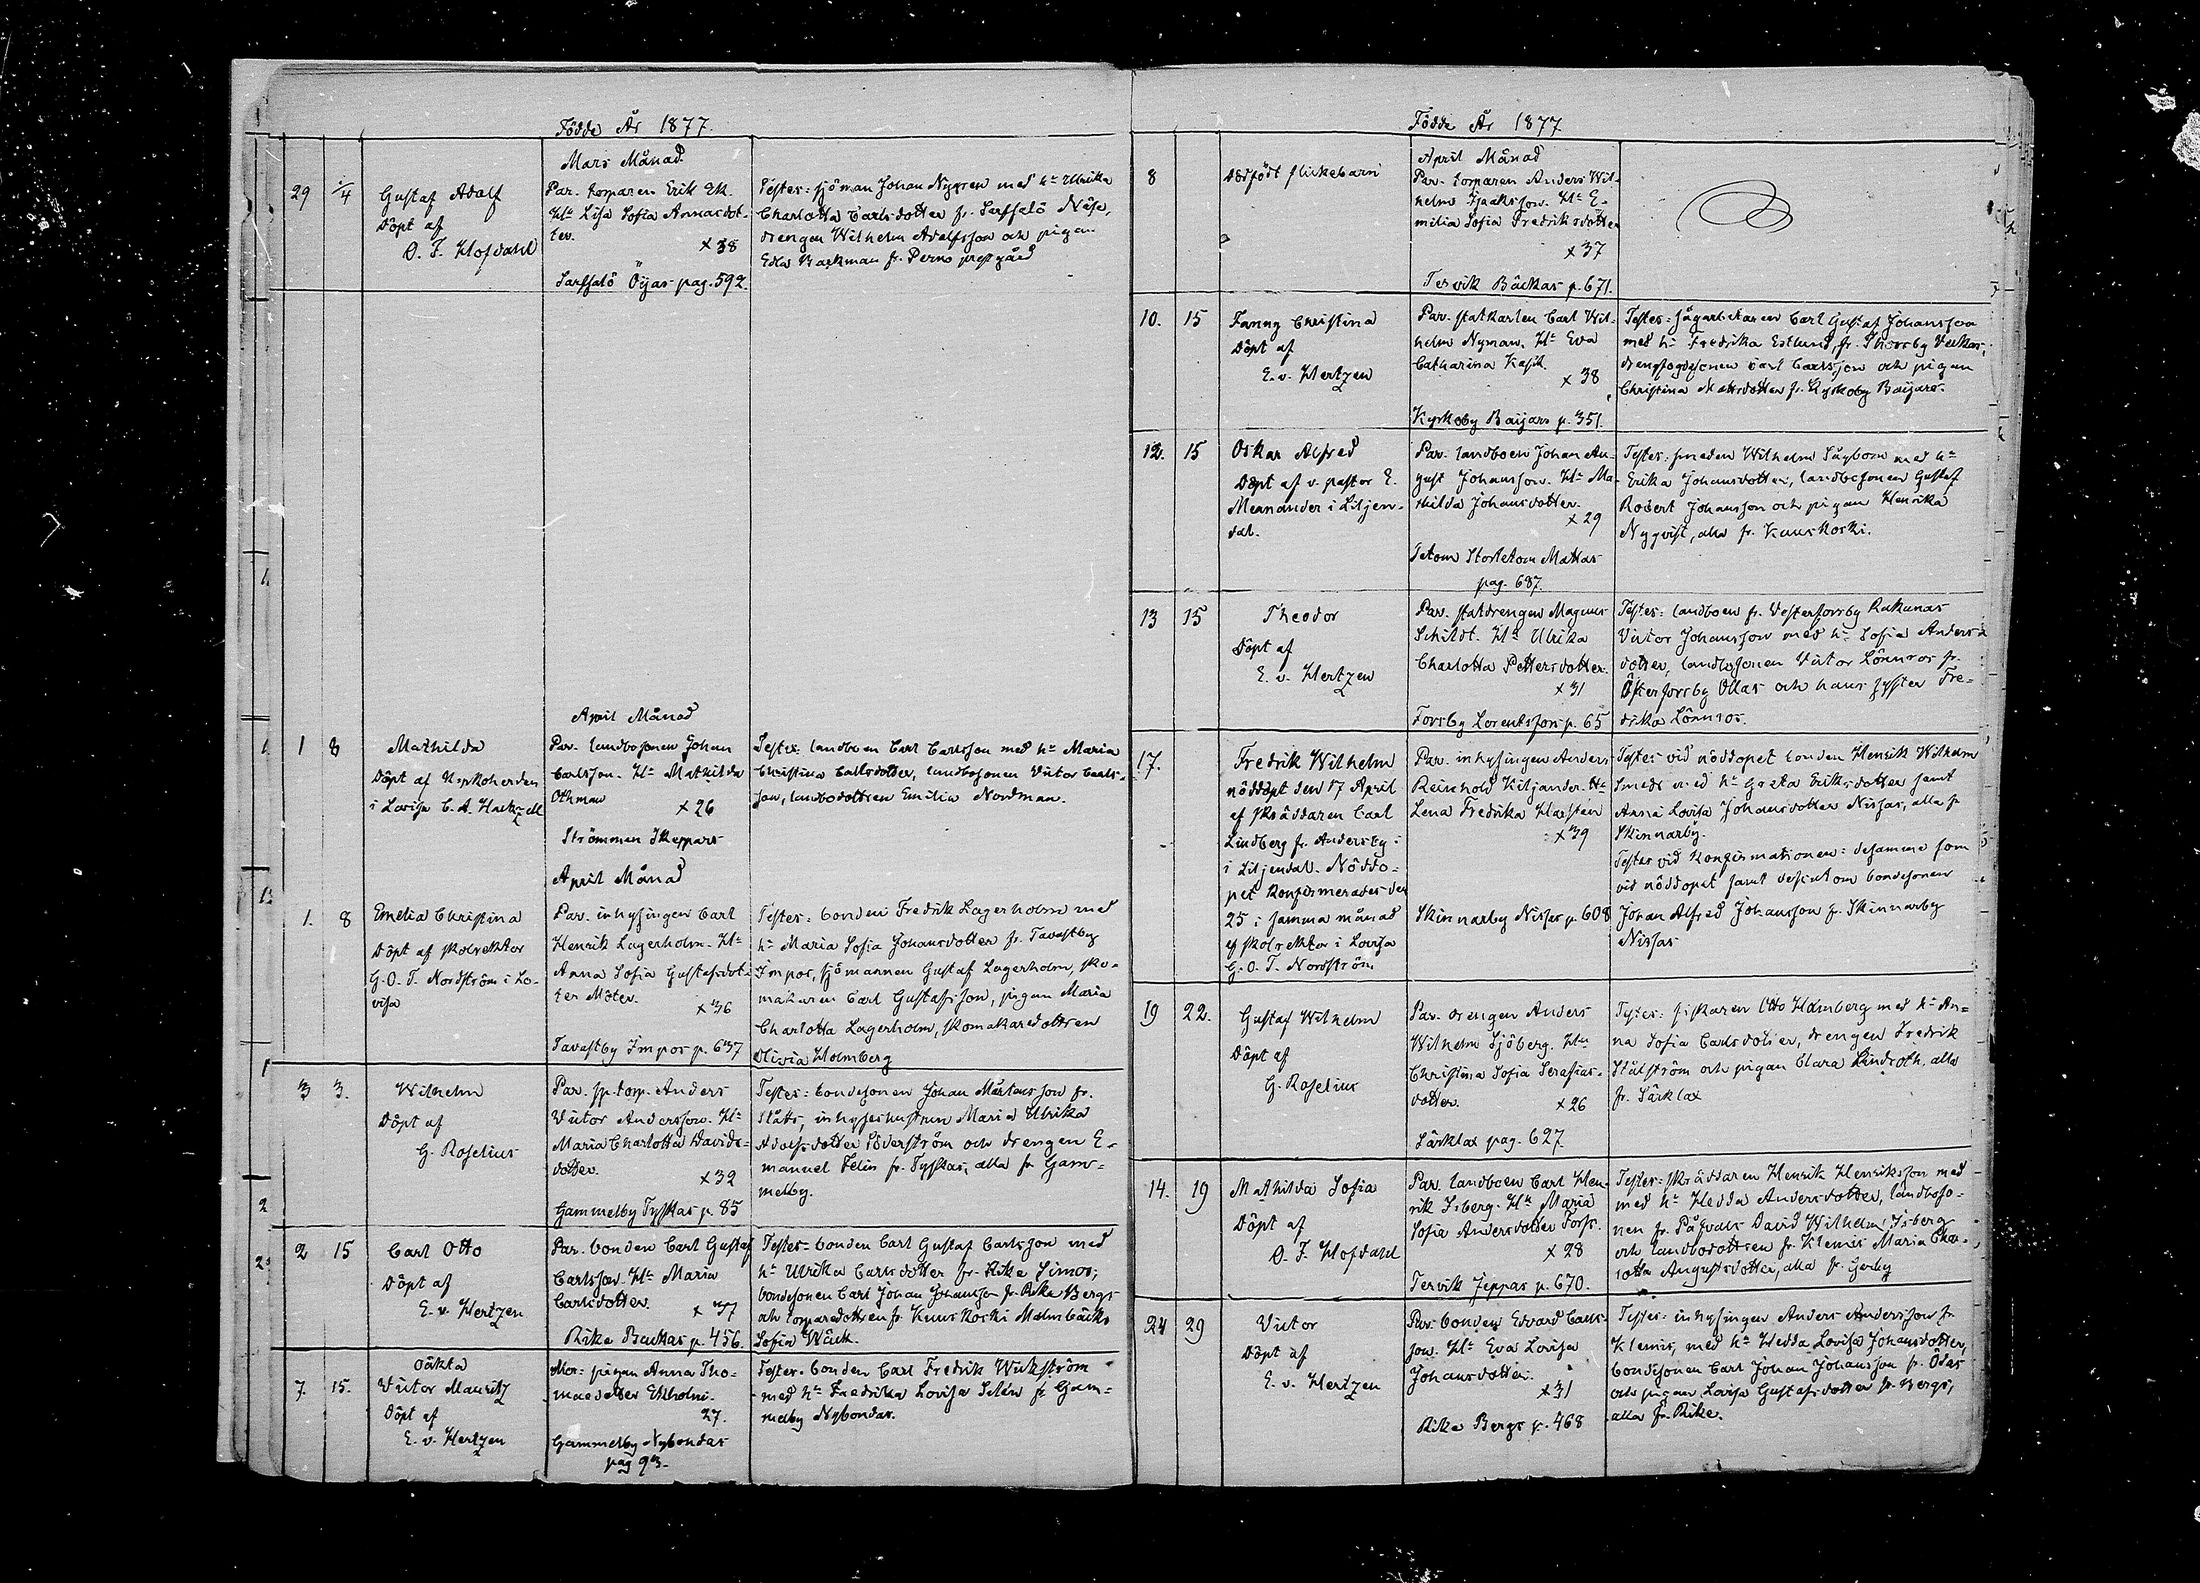 Födde År 1877.
Mars Månad
29 1/4 Gustaf Adolf
Döpt af
O. F. Hofdahl
Par. torparen Erik Ek.
Hu Lisa Sofia Annasdot-
ter.
x 38
Sarfsalö Öijas pag. 592.
Testes: sjöman Johan Nygren med hu Ulrika
Charlotta Carlsdotter fr. Sarfsalö Näse,
drengen Wilhelm Adolfsson och pigan
Edla Backman fr. Perno prestgård
April Månad
1 8 Mathilda
Döpt af Kyrkoherden
i Lovisa C. A. Hackzell
Par. landbosonen Johan
Carlsson. Hu Mathilda
Othman
x 26
Strömmen Skeppars
Testes: landboen Carl Carlsson med hu Maria
Christina Carlsdotter, landbosonen Victor Carls-
son, landbodottren Emilia Nordman.
April Månad
1. 8 Emelia Christina
Döpt af skolrektor
G. O. T. Nordström i Lo-
visa
Par. inhysingen Carl
Henrik Lagerholm. Hu
Anna Sofia Gustafsdot-
ter Möter.
x 36
Tavastby Impos p. 637
Testes: bonden Fredrik Lagerholm med
hu Maria Sofia Johansdotter fr. Tavastby
Impos, sjömannen Gustaf Lagerholm, sko-
makaren Carl Gustafsson, pigan Maria
Charlotta Lagerholm, skomakaredottren
Olivia Holmberg
3 3. Wilhelm
Döpt af
G. Roselius
Par. sp. torp. Anders
Victor Andersson. Hu
Maria Charlotta Davids-
dotter.
x 32
Gammelby Tyskas p. 85
Testes: bondesonen Johan Mårtensson fr.
Slätts, inhyseshustrun Maria Ulrika
Adolfsdotter Söderström och drengen E-
manuel Felin fr. Tyskas, alla fr Gam-
melby.
2 15 Carl Otto
Döpt af
E. v. Hertzen
Par. bonden Carl Gustaf
Carlsson. Hu Maria
Carlsdotter.
x 37
Rike Backas p. 456.
Testes: bonden Carl Gustaf Carlsson med
hu Ulrika Carlsdotter fr. Rike Simos,
bondesonen Carl Johan Johansson fr. Rike Bergs
och torparedottren fr. Kuuskoski Malmbäcks
Sofia Wäck.
oäkta
7 15. Victor Mauritz
Döpt af
E. v. Hertzen
Mor: pigan Anna Tho-
masdotter Ekholm.
27.
Gammelby Nybondas
pag 93.
Testes: bonden Carl Fredrik Wickström
med hu Fredrika Lovisa Selén fr Gam-
melby Nybondas.
Födde År 1877
April Månad
8 Dödfödt flickebarn
Par. torparen Anders Wil-
helm Isaaksson. Hu E-
milia Sofia Fredriksdotter
x 37
Tervik Bäckas p. 671.
10. 15 Fanny Christina
Döpt af
E. v. Hertzen
Par. statkarlen Carl Wil-
helm Nyman. Hu Eva
Catharina Kask.
x 38
Kyrkoby Baijars p. 351.
Testes: sågarbetaren Carl Gustaf Johansson
med hu Fredrika Estlund, fr. Thorsby
drengfogdesonen Carl Carlsson och pigan
Christina Mattsdotter fr. Kyrkoby Baijars.
12. 15 Oskar Alfred
Döpt af v. pastor E.
Menander i Liljen-
dal.
Par. landboen Johan Au-
gust Johansson. Hu Ma-
thilda Johansdotter.
x 29
Tetom Stortetom Mattas
pag. 687.
Testes: smeden Wilhelm Sågbom med hu
Erika Johansdotter, landbosonen Gustaf
Robert Johansson och pigan Henrika
Nyqvist, alla fr. Kuuskoski.
13 15 Theodor
Döpt af
E. v. Hertzen
Par. statdrengen Magnus
Schildt. Hu Ulrika
Charlotta Pettersdotter.
x 31
Forsby Lorentsfors p. 65
Testes: landboen fr. Vesterforsby Rakunas
Victor Johansson med hu Sofia Anders-
dotter, landbosonen Victor Lönnros fr.
Österforsby Ollas och hans syster Fre-
drika Lönnros.
17. Fredrik Wilhelm
nöddöpt den 17 April
af skräddaren Carl
Lindberg fr. Andersby
i Liljendal. Nöddo-
pet konfirmerades den
25 i samma månad
af skolrektor i Lovisa
G. O. T. Nordström
Par. inhysingen Anders
Reinhold Kiljander. Hu
Lena Fredrika Klastén
x 39
Skinnarby Nissas p. 608
Testes vid nöddopet bonden Henrik Wilhelm
Smeds med hu Greta Eriksdotter samt
Anna Lovisa Johansdotter Nissas, alla fr
Skinnarby.
Testes vid konfirmationen: desamme som
vid nöddopet samt dessutom bondesonen
Johan Alfred Johansson fr. Skinnarby
Nissas
19 22. Gustaf Wilhelm
Döpt af
G. Roselius
Par. drengen Anders
Wilhelm Sjöberg. Hu
Christina Sofia Serafias-
dotter.
x 26
Särklax pag. 627
Testes: fiskaren Otto Holmberg med hu An-
na Sofia Carlsdotter, drengen Fredrik
Stålström och pigan Clara Lindroth, alla
fr. Särklax
14. 19 Mathilda Sofia
Döpt af
O. F. Hofdahl
Par. landboen Carl Hen-
rik Isberg. Hu Maria
Sofia Andersdotter Forss.
x 28
Tervik Jeppas p. 670.
Testes: skräddaren Henrik Henriksson med
med hu Hedda Andersdotter, landboso-
nen fr. Påfvals David Wilhelm Isberg
och landbodottren fr. Klemis Maria Char-
lotta Augustsdotter, alla fr. Gerby
24 29 Victor
Döpt af
E. v. Hertzen
Par. bonden Edvard Carls-
son. Hu Eva Lovisa
Johansdotter.
x 31
Rike Bergs p. 468
Testes: inhysingen Anders Andersson fr
Klemis, med hu Hedda Lovisa Johansdotter,
bondesonen Carl Johan Johansson fr. Ödas
och pigan Lovisa Gustafsdotter fr. Bergs,
alla fr. Rike.